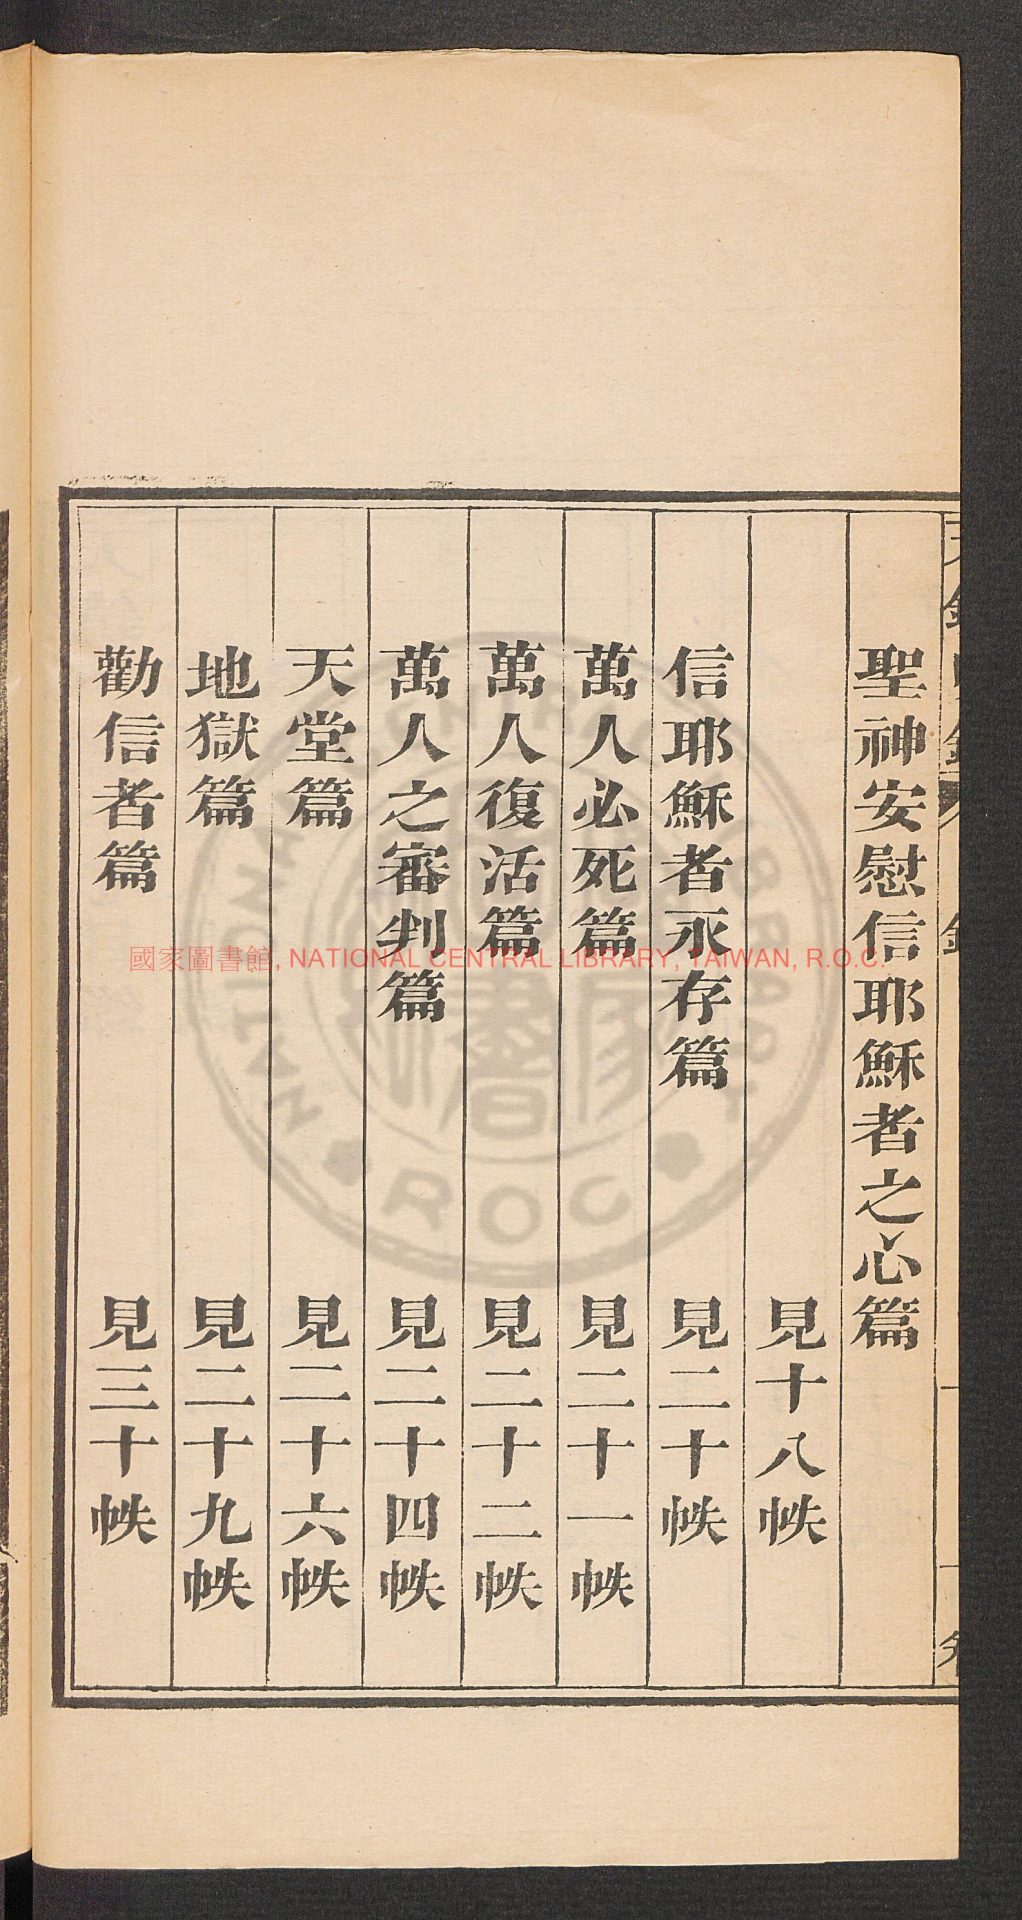 聖神安慰信耶穌者之心篇
見十八帙
信耶穌者永存篇 見二十帙
萬人必死篇 見二十一帙
萬人復活篇 見二十二帙
萬人之審判篇 見二十四帙
天堂篇 見二十六帙
地獄篇 見二十九帙
勸信者篇 見三十帙
國家圖書館, NATIONAL CENTRAL LIBRARY, TAIWAN, R.O.C.